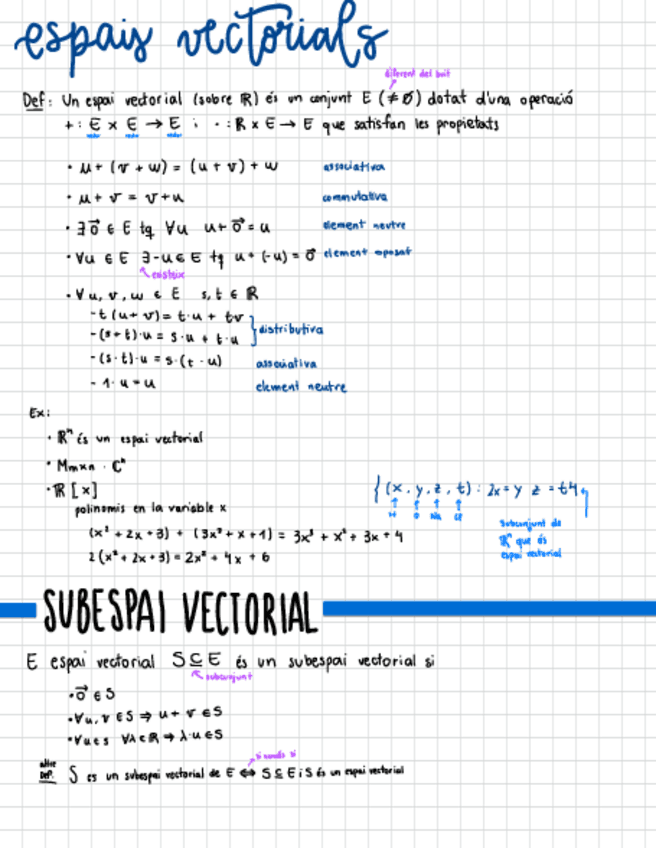 espais vectorials
diferent del buit
Def: Un espai vectorial (sobre ℝ) és un conjunt E (≠ ∅) dotat d'una operació
+ : E x E → E i · : ℝ x E → E que satisfan les propietats
vector vector vector
• u + (v + w) = (u + v) + w associativa
• u + v = v + u commutativa
• ∃ 0⃗ ∈ E tq ∀u u + 0⃗ = u element neutre
• ∀u ∈ E ∃ -u ∈ E tq u + (-u) = 0⃗ element oposat
existeix
• ∀ u, v, w ∈ E s, t ∈ ℝ
- t (u + v) = t·u + tv
- (s+t)·u = s·u + t·u distributiva
- (s·t)·u = s·(t·u) associativa
- 1·u = u element neutre
Ex:
• ℝⁿ és un espai vectorial
• Mmxn · ℂⁿ
• ℝ [x]
polinomis en la variable x
(x² + 2x + 3) + (3x³ + x + 1) = 3x³ + x² + 3x + 4
2 (x² + 2x + 3) = 2x² + 4x + 6
{ (x, y, z, t) : 2x = y z = t }
H O Na Cl
subconjunt de
ℝⁿ que és
espai vectorial
SUBESPAI VECTORIAL
E espai vectorial S ⊆ E és un subespai vectorial si
subconjunt
• 0⃗ ∈ S
• ∀u, v ∈ S ⇒ u + v ∈ S
• ∀u ∈ S ∀λ ∈ ℝ ⇒ λ·u ∈ S
si només si
altre
DeF. S es un subespai vectorial de E ⇔ S ⊆ E i S és un espai vectorial